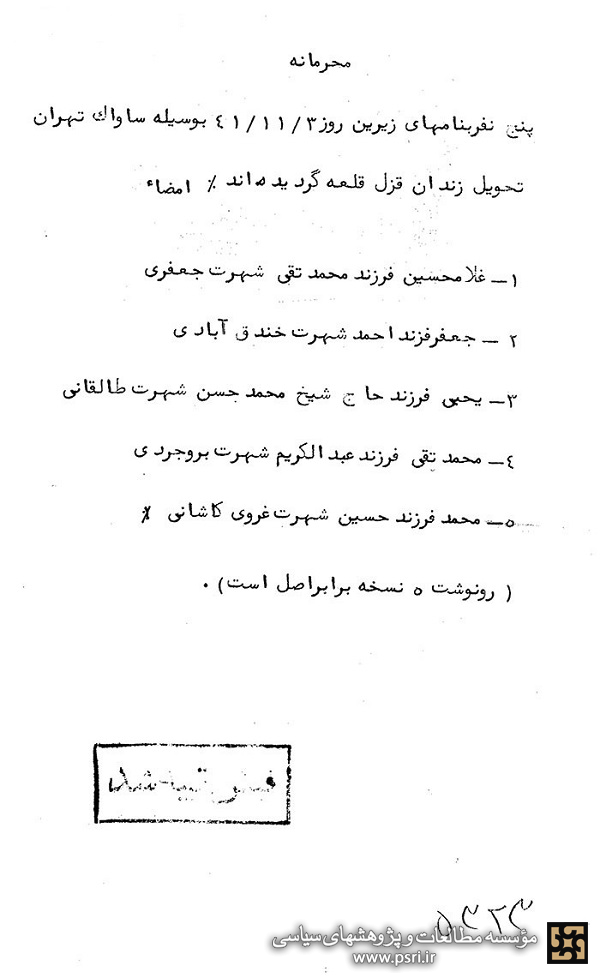 محرمانه
پنج نفربنامهای زیرین روز ۴۱/۱۱/۳ بوسیله ساواك تهران
تحویل زندان قزل قلعه گردیده‌اند ٪ امضاء
۱ــ غلامحسین فرزند محمد تقی شهرت جعفری
۲ ــ جعفرفزند احمد شهرت خندق آبادی
۳ــ یحیی فرزند حاج شیخ محمد حسن شهرت طالقانی
۴ــ محمد تقی فرزند عبدالکریم شهرت بروجردی
۵ــ محمد فرزند حسین شهرت غروی کاشانی ٪
( رونوشت ۵ نسخه برابراصل است) .
شد
۵۳۲۳
مؤسسه مطالعات و پژوهشهای سیاسی
www.psri.ir